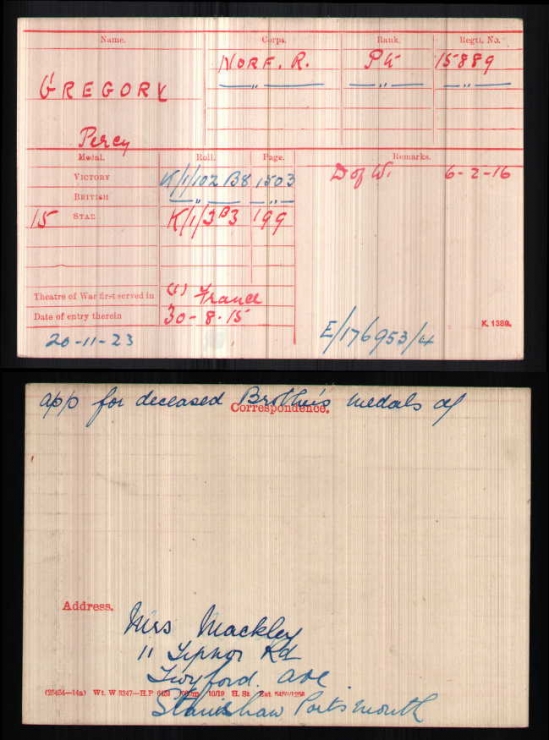 Name. Corps. Rank. Regtl. No.
NORF. R. Pte 15889
GREGORY " " "
Percy
Medal. Roll. Page. Remarks.
VICTORY K/1/102 B8 1503 D of W. 6-2-16
BRITISH " " "
15 STAR K/1/3 B3 199
Theatre of War first served in (1) France
Date of entry therein 30-8-15 K. 1380.
20-11-23 E/176953/4
app for deceased Brother's medals of
Correspondence.
Address.
Mrs Mackley
11 Rd
Twyford. Ave
H. St.
Stamshaw Portsmouth